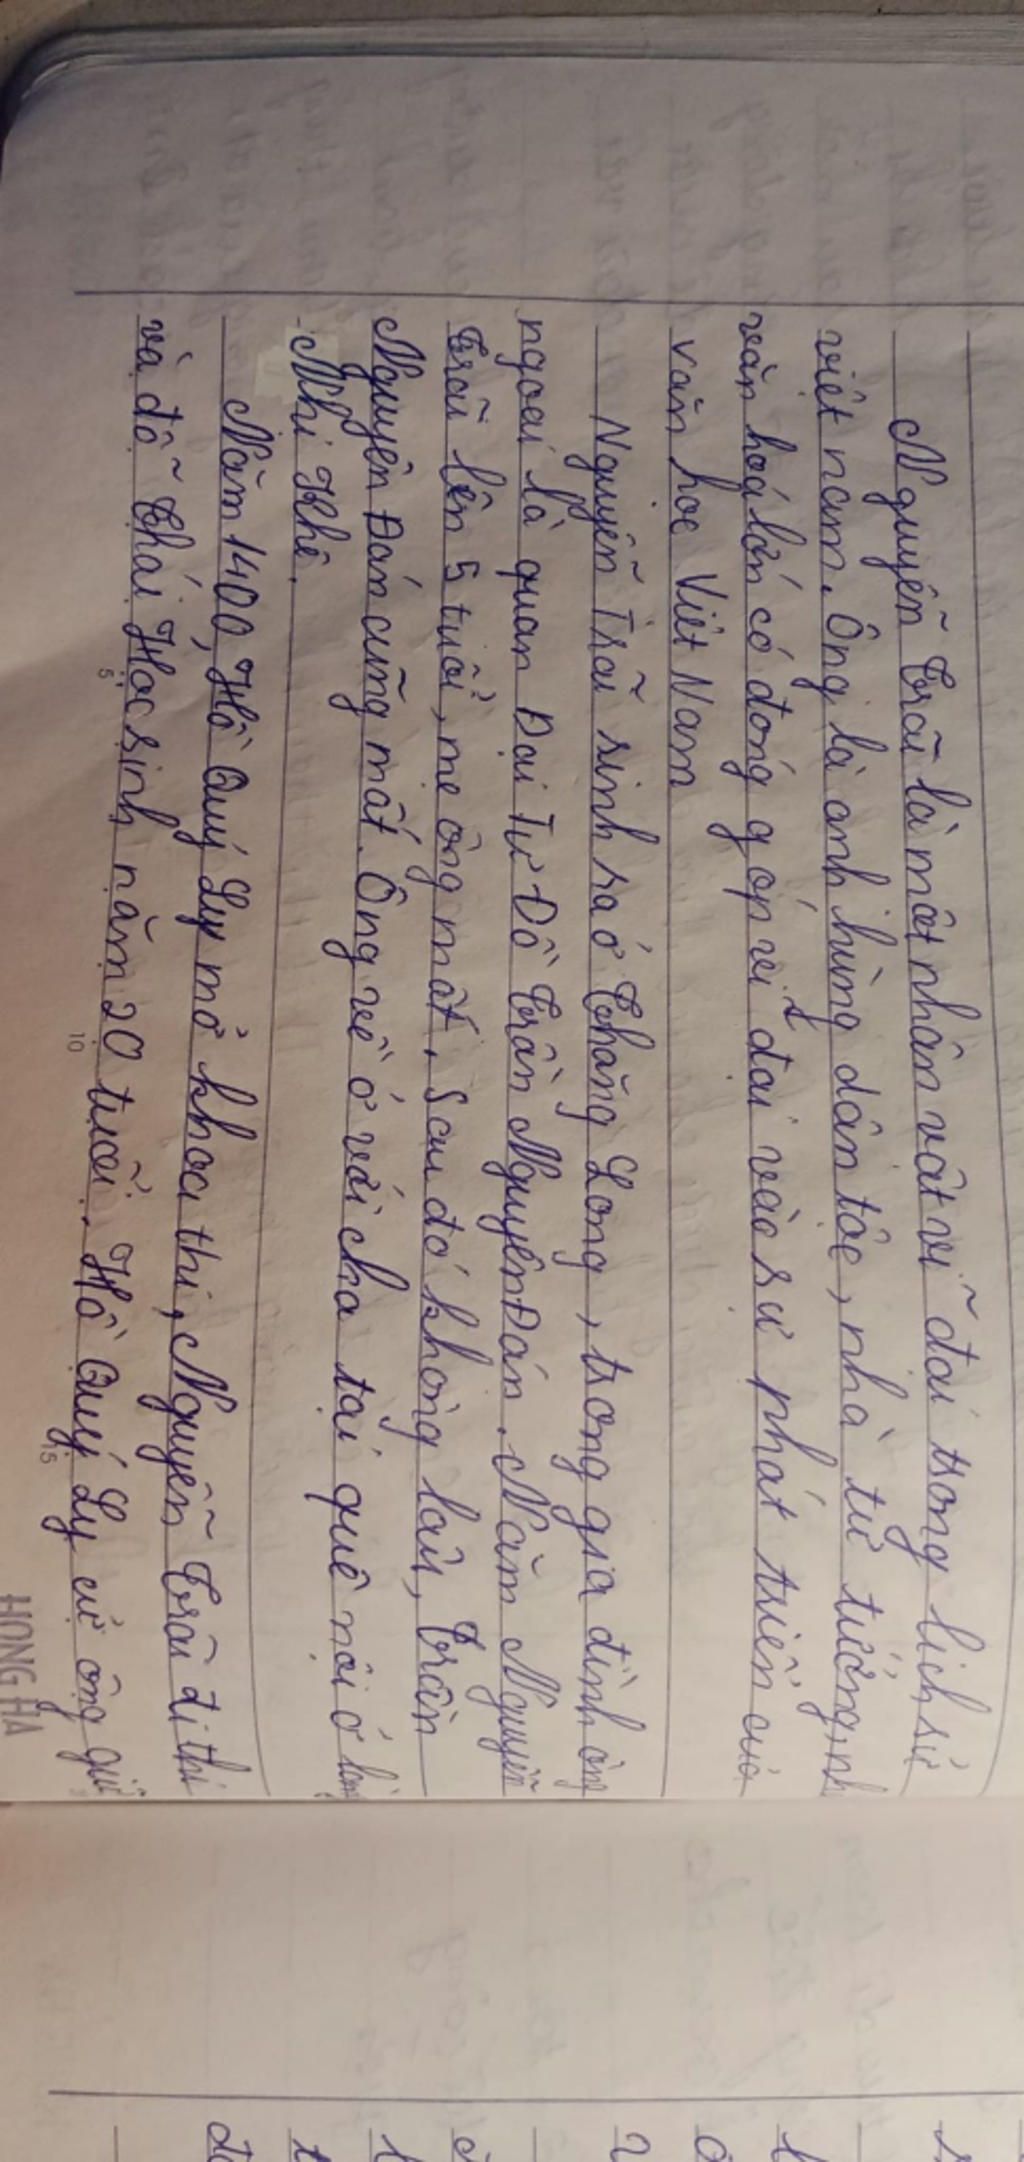 Nguyễn Trãi là một nhân vật vĩ đại trong lịch sử
việt nam. Ông là anh hùng dân tộc, nhà tư tưởng, nh
văn hoá lớn có đóng góp vĩ đại vào sự phát triển của
văn học Việt Nam
Nguyễn Trãi sinh ra ở Thăng Long, trong gia đình ông
ngoại là quan Đại Tư Đồ Trần Nguyên Đán. Năm Nguyễn
Trãi lên 5 tuổi, mẹ ông mất. Sau đó không lâu, Trần
Nguyên Đán cũng mất. Ông về ở với cha tại quê nội ở làng
Nhị Khê.
Năm 1400, Hồ Quý Ly mở khoa thi, Nguyễn Trãi đi thi
và đỗ Thái Học sinh năm 20 tuổi. Hồ Quý Ly cử ông giữ
5 10 15
HONG HA